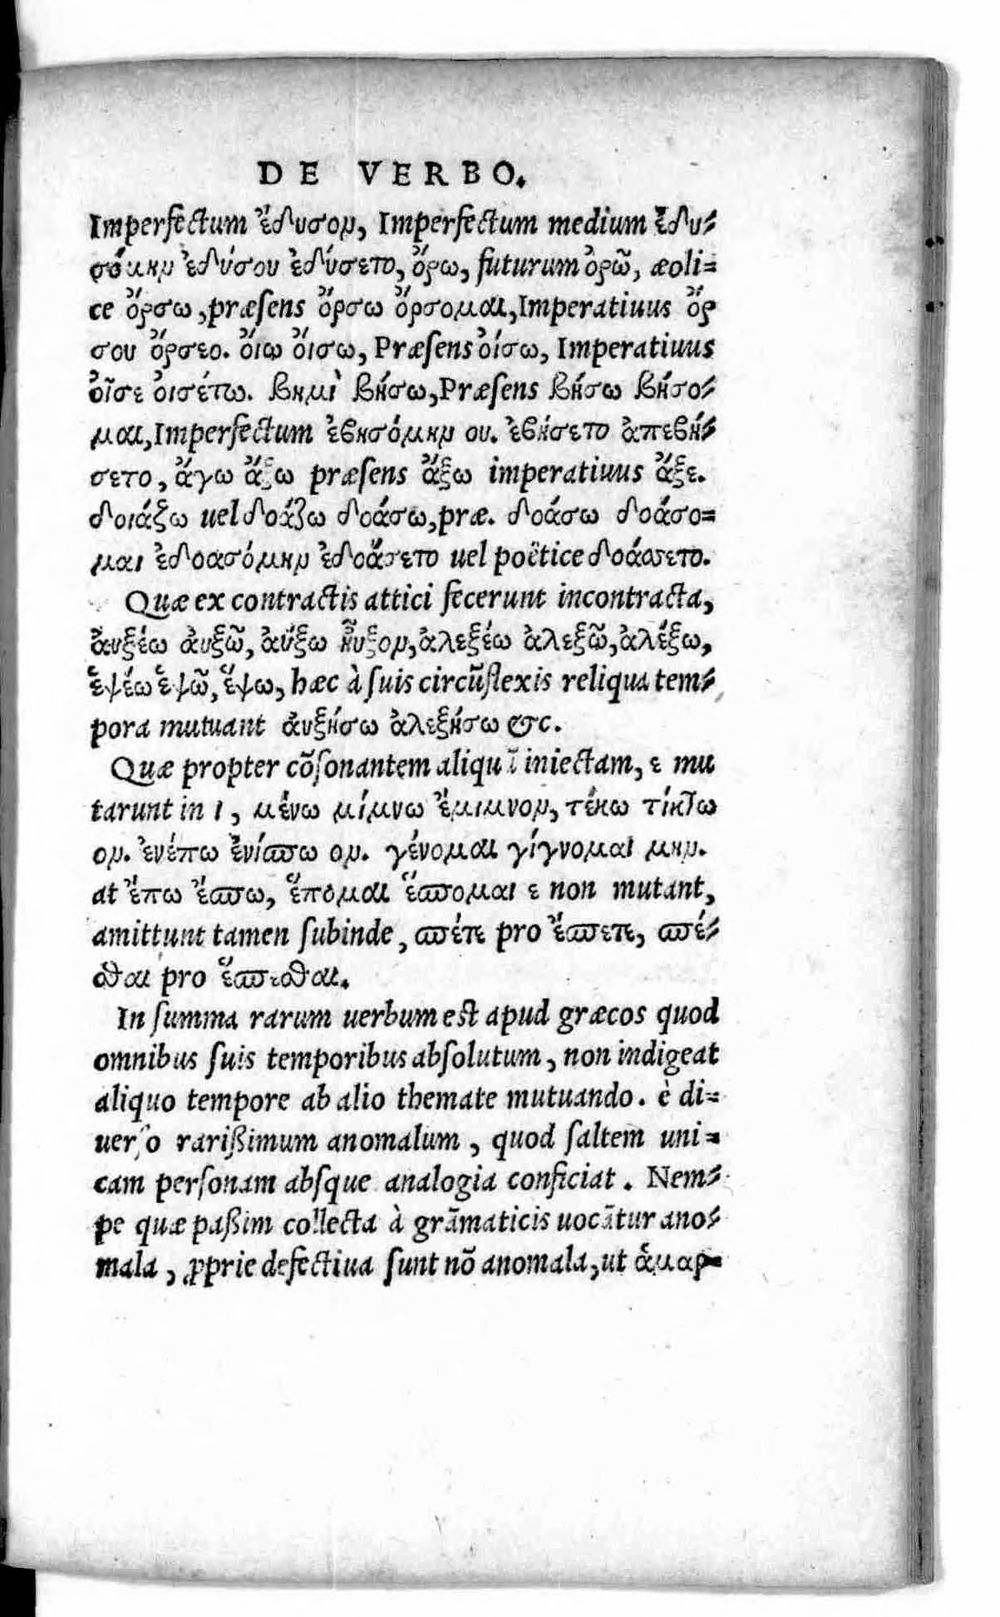 DE VERBO.
Imperfectum ἔδυσον, Imperfectum medium ἐδυ-
σόμην ἐδύσου ἐδύσετο, ὄρω, futurum ὀρῶ, æoli=
ce ὄρσω, præsens ὄρσω ὄρσομαι, Imperatiuus ὄρ
σου ὄρσεο. ὄιω ὄισω, Præsens ὀίσω, Imperatiuus
οἶσε οισέτω. βημὶ βήσω, Præsens βήσω βήσο-
μαι, Imperfectum ἐβησόμην ου. ἐβήσετο ἀπεβή-
σετο, ἄγω ἄξω præsens ἄξω imperatiuus ἄξε.
δοιάζω uel δοάζω δοάσω, præ. δοάσω δοάσο=
μαι ἐδοασόμην ἐδοάσετο uel poëtice δοάσσετο.
Quæ ex contractis attici fecerunt incontracta,
ἀυξέω ἀυξῶ, ἀύξω ηὖξον, ἀλεξέω ἀλεξῶ, ἀλέξω,
ἑψέω ἑψῶ, ἕψω, hæc à suis circũflexis reliqua tem-
pora mutuant ἀυξήσω ἀλεξήσω &c.
Quæ propter cõsonantem aliquã iniectam, ε mu
tarunt in ι, μένω μίμνω ἔμιμνον, τέκω τίκτω
ον. ἐνέπω ἐνίσπω ον. γένομαι γίγνομαι μην.
at ἔπω ἔσπω, ἕπομαι ἕσπομαι ε non mutant,
amittunt tamen subinde, σπέτε pro ἔσπετε, σπέ-
σθαι pro ἕσπεσθαι.
In summa rarum uerbum est apud græcos quod
omnibus suis temporibus absolutum, non indigeat
aliquo tempore ab alio themate mutuando. è di=
uerso rarißimum anomalum, quod saltem uni=
cam personam absque analogia conficiat. Nem-
pe quæ paßim collecta à grãmaticis uocãtur ano-
mala, ꝓprie defectiua sunt nõ anomala, ut ἁμαρ=